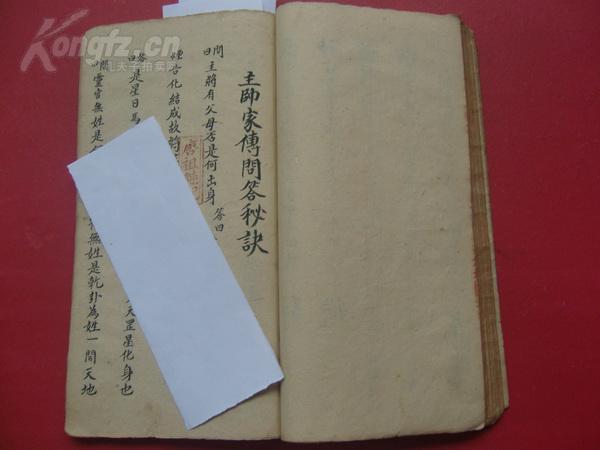 主帥家傳問答秘訣
問曰主將有父母否是何出身答曰
煙告化結成故
答曰是星日馬
天罡星化身也
問曰靈官無姓是
無姓是乾卦為姓一問天地
Kongfz.cn
孔夫子拍卖网